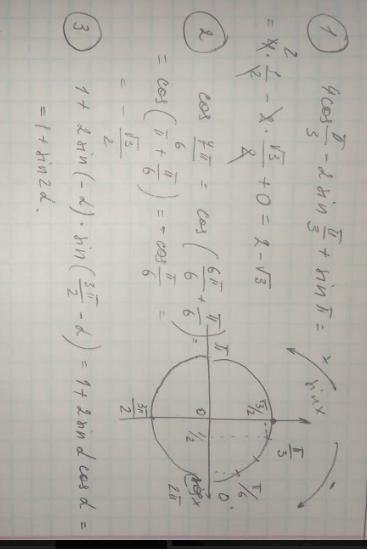 ① 4cos π/3 - 2 sin π/3 + sin π =
= 4 · 1/2 - 2 · √3/2 + 0 = 2 - √3
② cos 7π/6 = cos (6π/6 + π/6) =
= cos (π + π/6) = - cos π/6 =
= - √3/2
③ 1 + 2 sin (-α) · sin (3π/2 - α) = 1 + 2 sin α cos α =
= 1 + sin 2α.
sin x
π/3
π/6
√3/2
1/2
0
0
π
3π/2
2π